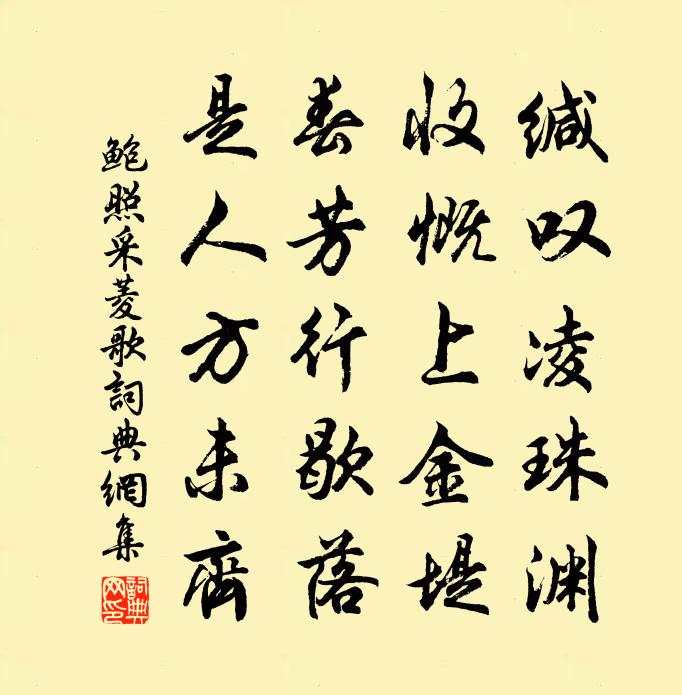 缄叹凌珠渊
收慨上金堤
春芳行歇落
是人方未齊
鲍照采菱歌詞典網集
詞典網印